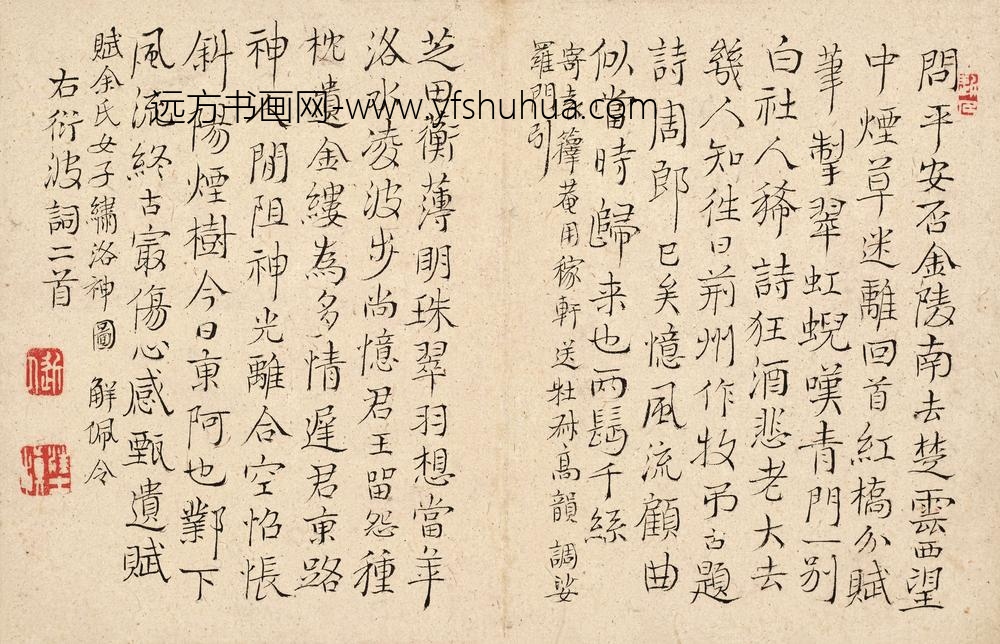 問平安否金陵南去楚雲西望
中煙草迷離回首紅橋分賦
筆掣翠虹蜺嘆青門一別
白社人稀詩狂酒悲老大去
幾人知往日荊州作牧弔古題
詩周郎已矣憶風流顧曲
似當時歸来也兩鬂千絲
寄袁籜菴用稼軒送杜叔高韻 調娑
羅門引
芝田蘅薄明珠翠羽想當年
洛水凌波步尚憶君王留怨種
枕遺金縷為多情遲君東路
神人閒阻神光離合空怊悵
斜陽煙樹今日東阿也鄴下
風流終古最傷心感甄遺賦
賦余氏女子繡洛神圖 解佩令
右衍波詞二首
远方书画网-www.yfshuhua.com